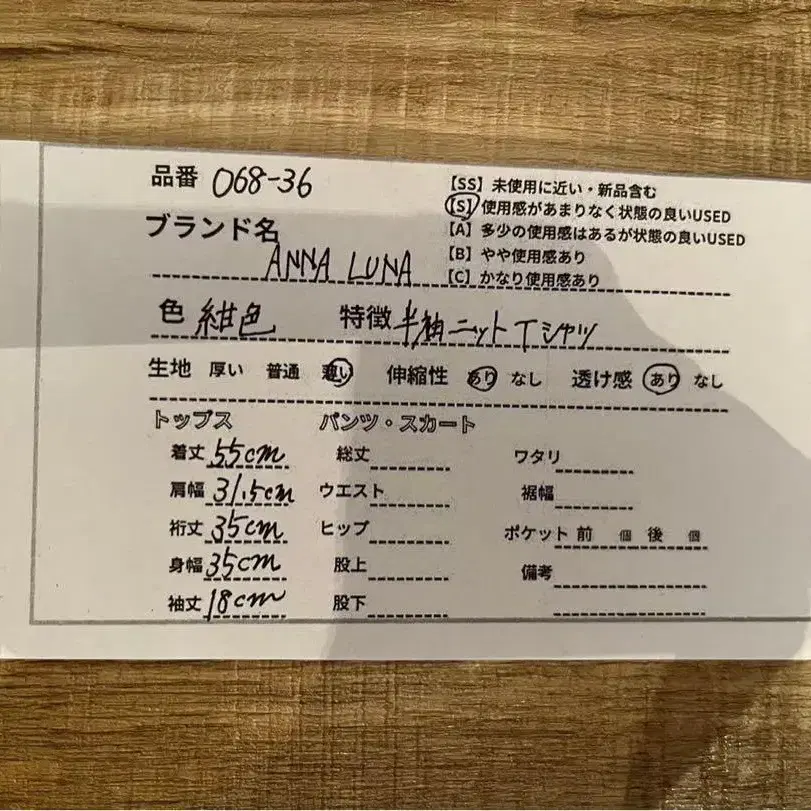 品番 068-36
【SS】未使用に近い・新品含む
【S】使用感があまりなく状態の良いUSED
【A】多少の使用感はあるが状態の良いUSED
【B】やや使用感あり
【C】かなり使用感あり
ブランド名 ANNA LUNA
色 紺色 特徴 半袖ニットTシャツ
生地 厚い 普通 薄い 伸縮性 あり なし 透け感 あり なし
トップス パンツ・スカート
着丈 55cm 総丈 ワタリ
肩幅 31.5cm ウエスト 裾幅
裄丈 35cm ヒップ ポケット 前 個 後 個
身幅 35cm 股上 備考
袖丈 18cm 股下